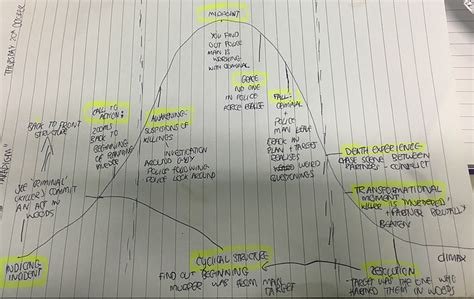 THURSDAY 20th OCTOBER
"PARADIGM"
MIDPOINT
YOU FIND
OUT POLICE
MAN IS
WORKING
WITH CRIMINAL
CALL TO
ACTION:
ZOOMS
BACK TO
BEGINNING
OF PLANNING
MURDER
BACK TO FRONT
STRUCTURE
SEE 'CRIMINAL'
(KILLER) COMMIT
AN ACT IN
WOODS
INDICING
INCIDENT
AWAKENING:
SUSPICIONS OF
KILLINGS
INVESTIGATION
AROUND BODY
POLICE FOLLOWING
POLICE LOOK AROUND
GRACE
NO ONE
IN POLICE
FORCE REALISE
FALL:
CRIMINAL
+
POLICE
MAN
PLAN + TARGET
REALISES
WEIRD
QUESTIONINGS
DEATH EXPERIENCE-
CHASE SCENE BETWEEN
PARTNERS - CONFLICT
TRANSFORMATIONAL
MOMENT
KILLER IS MURDERED
+ PARTNER BRUTALLY
BEATEN
CLIMAX
CYCLICAL STRUCTURE
FIND OUT BEGINNING
MURDER WAS FROM MAIN
TARGET
RESOLUTION
- TARGET WAS THE ONE WHO
HARMED THEM IN WOODS